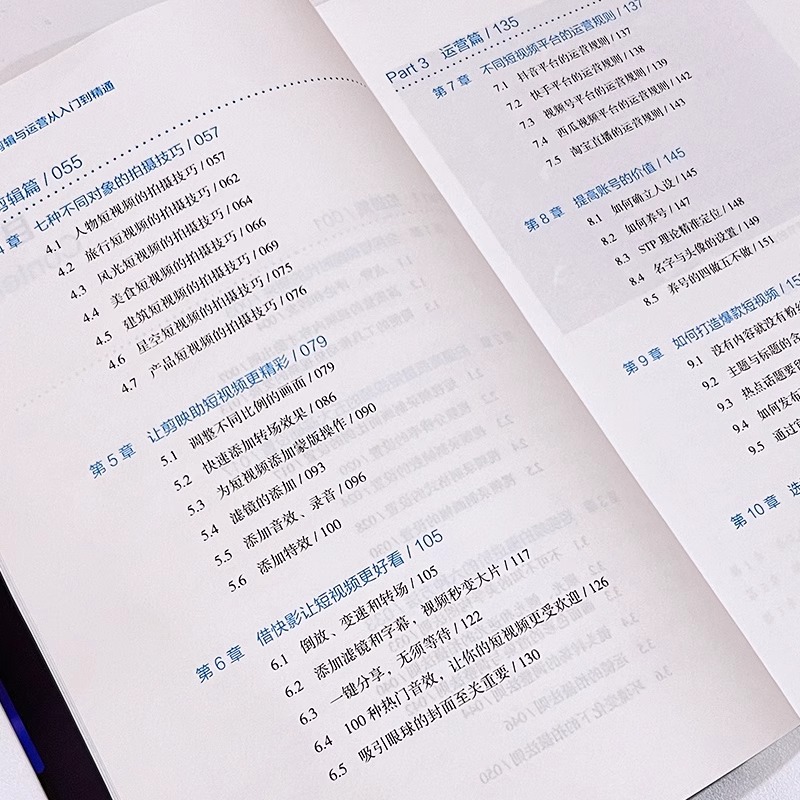 辑与运营从入门到精通
剪辑篇 / 055
章 七种不同对象的拍摄技巧 / 057
4.1 人物短视频的拍摄技巧 / 057
4.2 旅行短视频的拍摄技巧 / 062
4.3 风光短视频的拍摄技巧 / 064
4.4 美食短视频的拍摄技巧 / 066
4.5 建筑短视频的拍摄技巧 / 069
4.6 星空短视频的拍摄技巧 / 075
4.7 产品短视频的拍摄技巧 / 076
第 5 章 让剪映助短视频更精彩 / 079
5.1 调整不同比例的画面 / 079
5.2 快速添加转场效果 / 086
5.3 为短视频添加蒙版操作 / 090
5.4 滤镜的添加 / 093
5.5 添加音效、录音 / 096
5.6 添加特效 / 100
第 6 章 借快影让短视频更好看 / 105
6.1 倒放、变速和转场 / 105
6.2 添加滤镜和字幕，视频秒变大片 / 117
6.3 一键分享，无须等待 / 122
6.4 100 种热门音效，让你的短视频更受欢迎 / 126
6.5 吸引眼球的封面至关重要 / 130
Part 3 运营篇 / 135
第 7 章 不同短视频平台的运营规则 / 137
7.1 抖音平台的运营规则 / 137
7.2 快手平台的运营规则 / 138
7.3 视频号平台的运营规则 / 139
7.4 西瓜视频平台的运营规则 / 142
7.5 淘宝直播的运营规则 / 143
第 8 章 提高账号的价值 / 145
8.1 如何确立人设 / 145
8.2 如何养号 / 147
8.3 STP 理论精准定位 / 148
8.4 名字与头像的设置 / 149
8.5 养号的四做五不做 / 151
第 9 章 如何打造爆款短视频 / 15
9.1 没有内容就没有粉
9.2 主题与标题的含
9.3 热点话题要
9.4 如何发布
9.5 通过
第 10 章 选